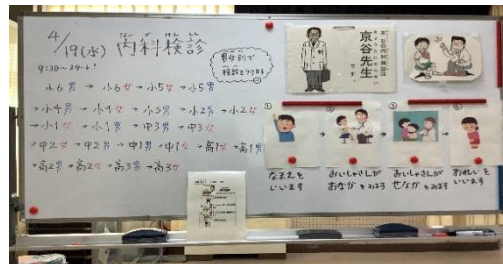 4/19(水) 内科検診
9:30～スタート!
男女別で
検診をうけます
小6男 → 小6女 → 小5女 → 小5男
→ 小4男 → 小4女 → 小3男 → 小2男 → 小2女
→ 小1女 → 小1男 → 中3男 → 中3女
→ 中2女 → 中2男 → 中1男 → 中1女 → 高1女 → 高1男
→ 高2男 → 高2女 → 高3男 → 高3女
京谷先生
です
①
②
③
④
なまえを
いいます
おいしゃさんが
おなかをみます
おいしゃさんが
せなかをみます
おれいを
いいます